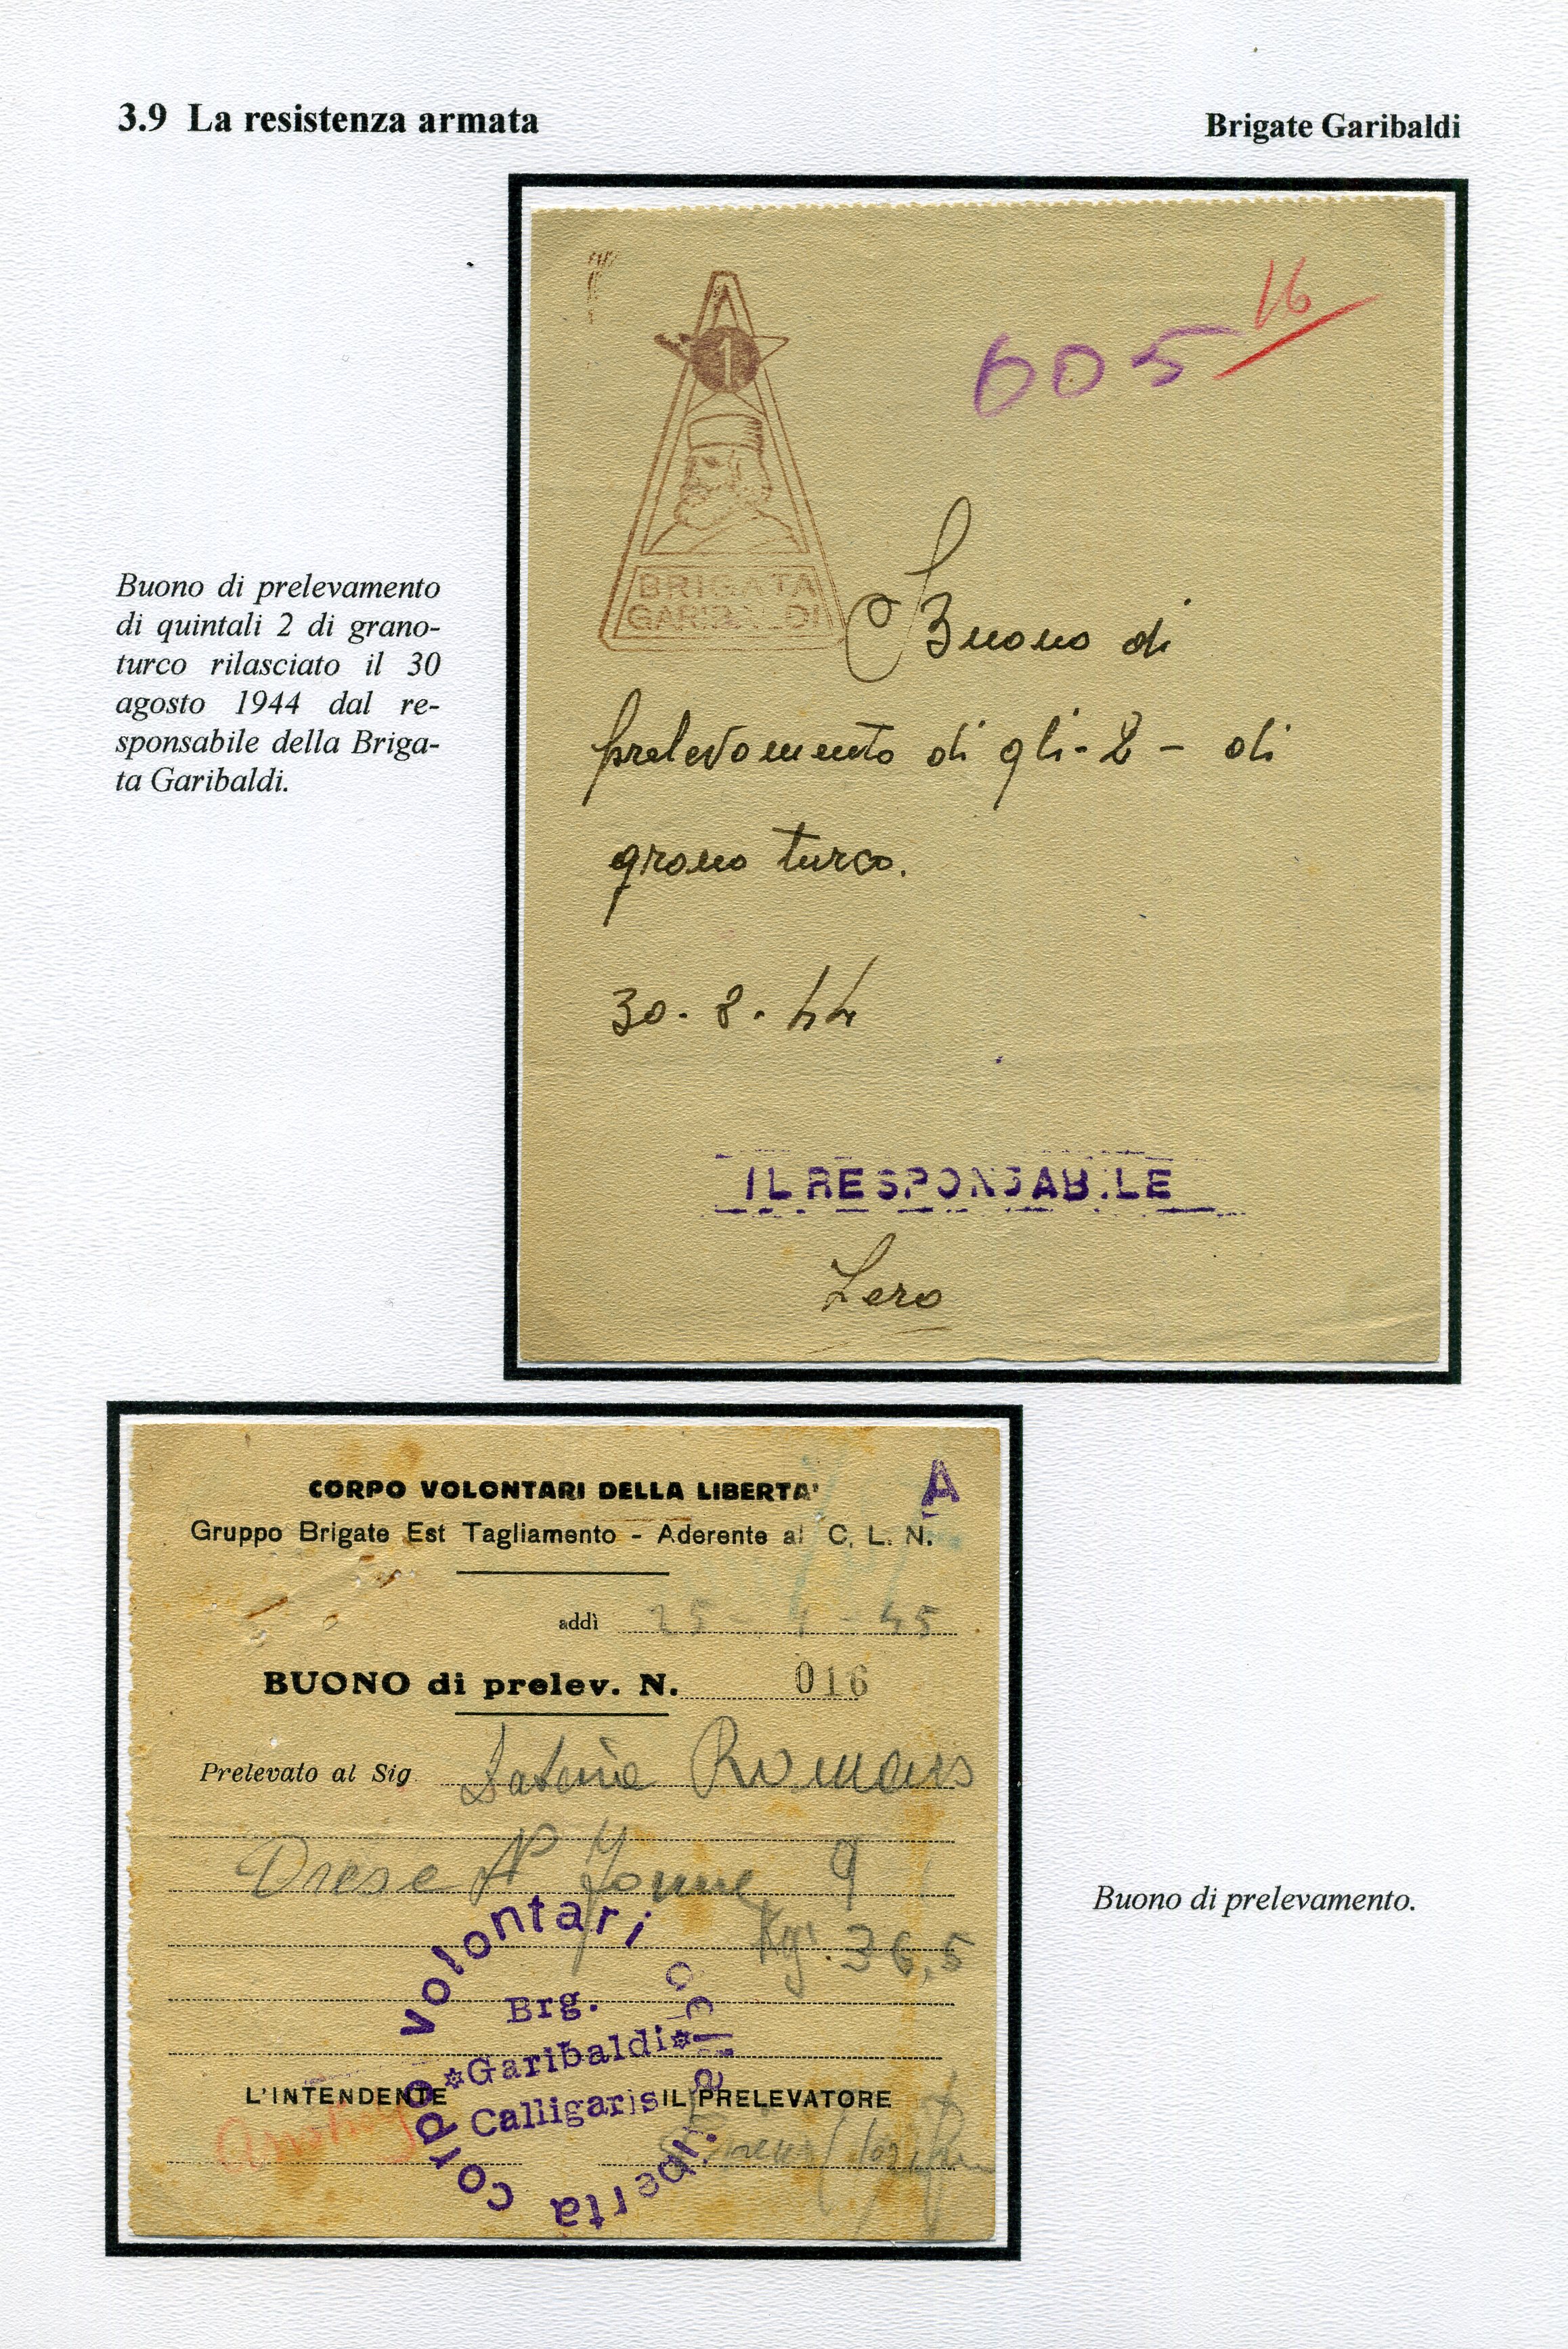 3.9 La resistenza armata
Brigate Garibaldi
16
605
1
BRIGATA
GARIBALDI
Buono di
prelevamento di qli-2- di
grano turco.
30-8-44
IL RESPONSABILE
Lero
Buono di prelevamento
di quintali 2 di grano-
turco rilasciato il 30
agosto 1944 dal re-
sponsabile della Briga-
ta Garibaldi.
A
CORPO VOLONTARI DELLA LIBERTA'
Gruppo Brigate Est Tagliamento - Aderente al C. L. N.
addì 25-4-45
BUONO di prelev. N. 016
Prelevato al Sig.
N° 9
Kg. 36,5
Corpo volontari della libertà
Brg.
*Garibaldi*
Calligaris
L'INTENDENTE IL PRELEVATORE
Buono di prelevamento.